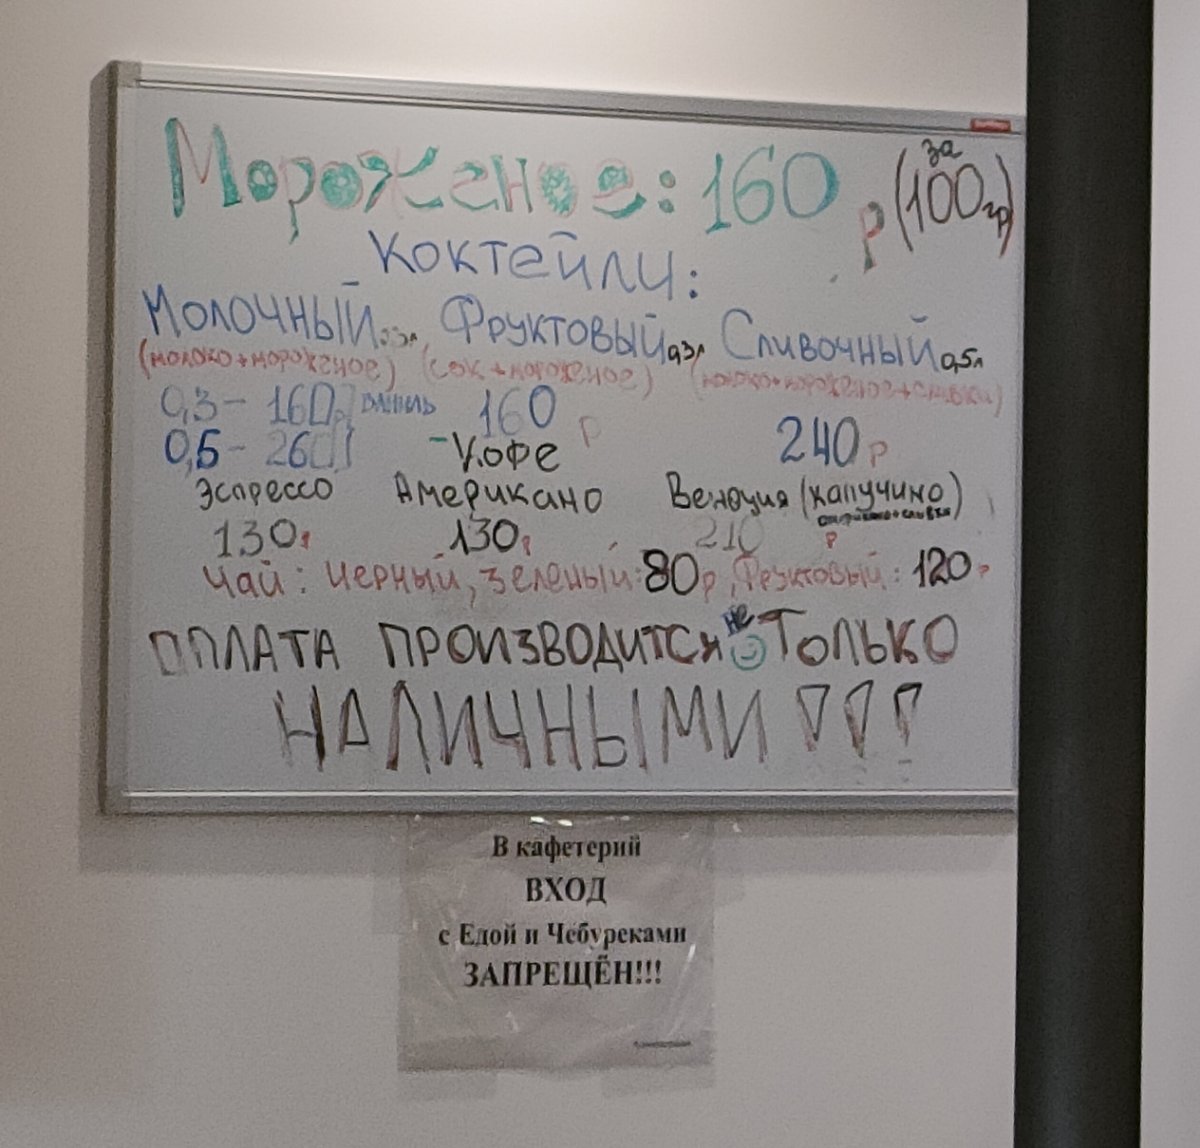 Мороженое: 160 р (за 100гр)
Коктейли:
Молочный Фруктовый 0,3л Сливочный 0,5л
(молоко+мороженое) (сок+мороженое) (молоко+мороженое+сливки)
0,3 - 160 ваниль 160 р
0,5 - 260 240 р
- Кофе
Эспрессо Американо Венеция (капучино)
130 130 210 р
Чай: черный, зеленый: 80 р, Фруктовый: 120 р
ОПЛАТА ПРОИЗВОДИТСЯ не ТОЛЬКО
НАЛИЧНЫМИ!!!
В кафетерий
ВХОД
с Едой и Чебуреками
ЗАПРЕЩЁН!!!